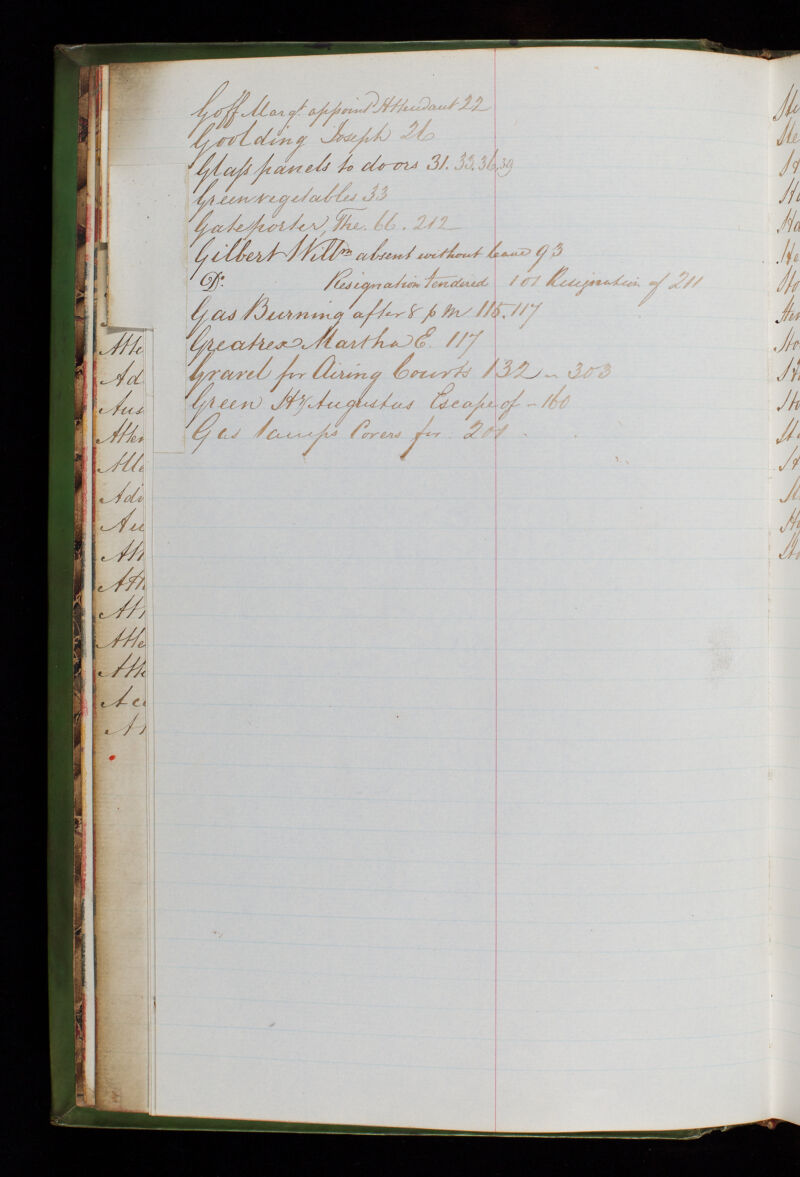 Goff Margt. appoind Attendant 22
Goolding Joseph 26
Glass panels to doors 31. 33. 36. 39
Green vegetables 33
Gateporter, The. 66. 212
Gilbert Willm absent without leave 93
Do. Resignation tendered 101 Resignation of 211
Gas Burning after 8 p m 115. 117
Greatrex Martha E. 117
Gravel for Airing Courts 132 - 303
Green Hy Augustus Escape of - 160
Gas lamps Covers for 201